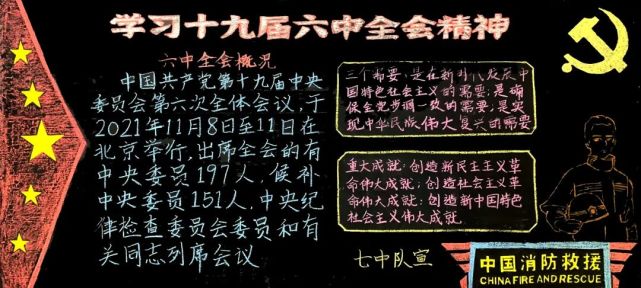 学习十九届六中全会精神
六中全会概况
中国共产党第十九届中央
委员会第六次全体会议,于
2021年11月8日至11日在
北京举行,出席全会的有
中央委员197人,候补
中央委员151人,中央纪
律检查委员会委员和有
关同志列席会议
三个需要:是在新时代发展中
国特色社会主义的需要;是确
保全党步调一致的需要;是实
现中华民族伟大复兴的需要
重大成就:创造新民主主义革
命伟大成就;创造社会主义革
命伟大成就;创造新中国特色
社会主义伟大成就.
七中队宣
中国消防救援
CHINA FIRE AND RESCUE